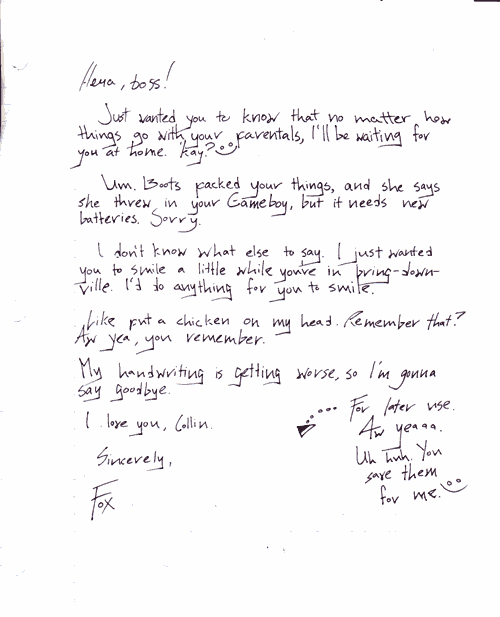 Heya, boss!
Just wanted you to know that no matter how
things go with your parentals, I'll be waiting for
you at home. Kay?
Um. Boots packed your things, and she says
she threw in your Gameboy, but it needs new
batteries. Sorry.
I don't know what else to say. I just wanted
you to smile a little while you're in bring-down-
ville. I'd do anything for you to smile.
Like put a chicken on my head. Remember that?
Aw yea, you remember.
My handwriting is getting worse, so I'm gonna
say goodbye.
I love you, Collin.
Sincerely,
Fox
For later use.
Aw yeaaa.
Uh huh. You
save them
for me.